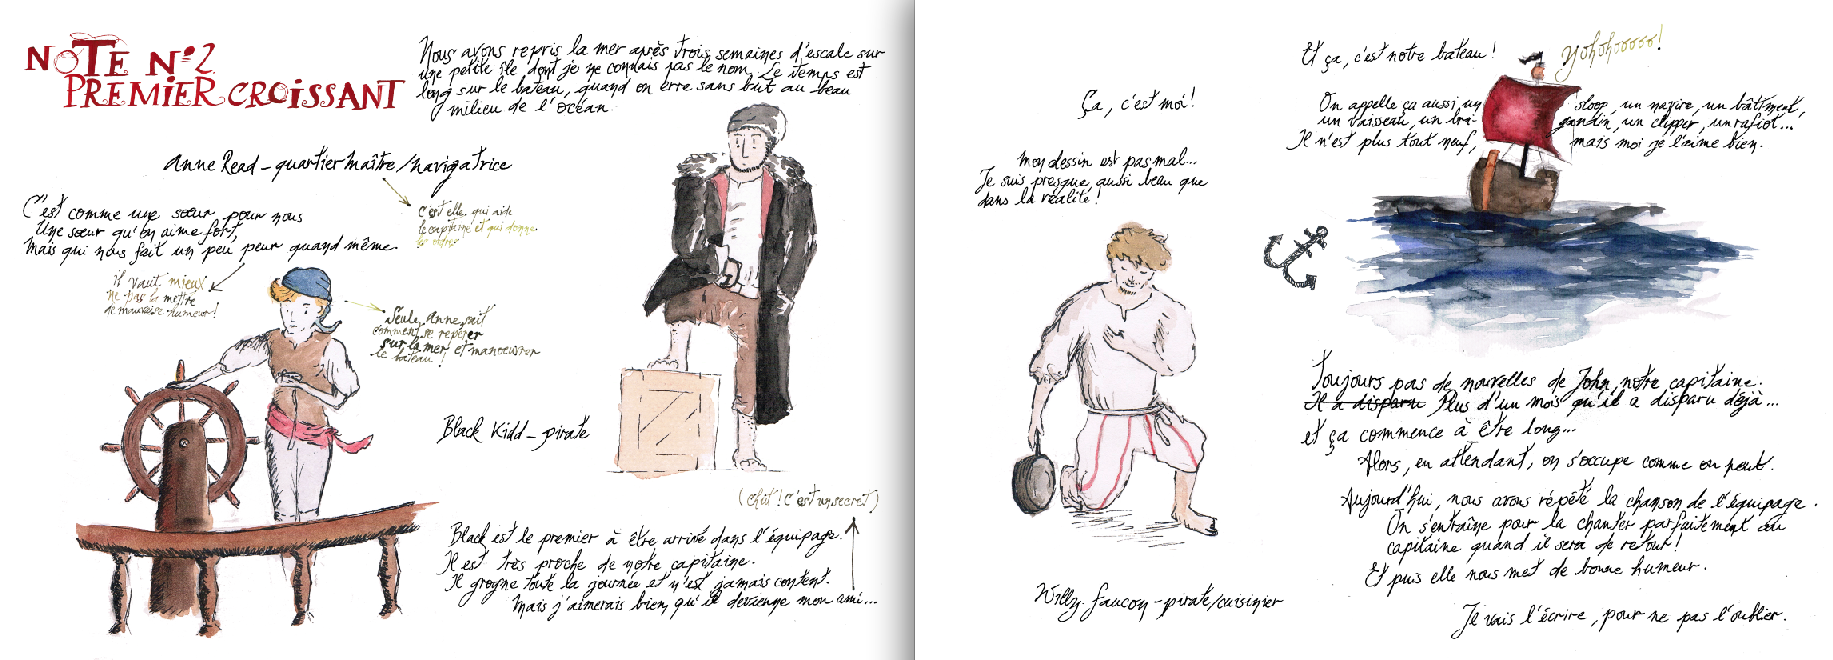 NOTE N°2
PREMIER CROISSANT
Nous avons repris la mer après trois semaines d'escale sur
une petite île dont je ne connais pas le nom. Le temps est
long sur le bateau, quand on erre sans but au beau
milieu de l'océan.
Anne Read - quartier maître/navigatrice
C'est elle qui aide
le capitaine et qui donne
les ordres
C'est comme une sœur pour nous
Une sœur qu'on aime fort,
Mais qui nous fait un peu peur quand même.
il vaut mieux
ne pas la mettre
de mauvaise humeur!
Seule Anne sait
comment se repérer
sur la mer et manœuvrer
le bateau!
Black Kidd - pirate
(Chut! C'est un secret)
Black est le premier à être arrivé dans l'équipage.
Il est très proche de notre capitaine.
Il grogne toute la journée et n'est jamais content.
Mais j'aimerais bien qu'il devienne mon ami...
Ça, c'est moi!
mon dessin est pas mal...
Je suis presque aussi beau que
dans la réalité!
Willy Faucon - pirate/cuisinier
Et ça, c'est notre bateau!
Yohohooooo!
On appelle ça aussi, un sloop, un navire, un bâtiment,
un vaisseau, un bri- gandin, un clipper, un rafiot...
Il n'est plus tout neuf, mais moi je l'aime bien.
Toujours pas de nouvelles de John, notre capitaine.
Il a disparu Plus d'un mois qu'il a disparu déjà...
et ça commence à être long...
Alors, en attendant, on s'occupe comme on peut.
Aujourd'hui, nous avons répété la chanson de l'équipage.
On s'entraîne pour la chanter parfaitement au
capitaine quand il sera de retour!
Et puis elle nous met de bonne humeur.
Je vais l'écrire, pour ne pas l'oublier.